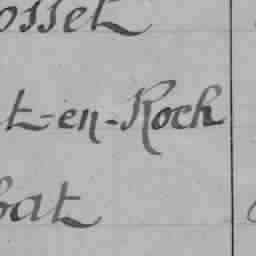 osset
t-en-Roch
bat